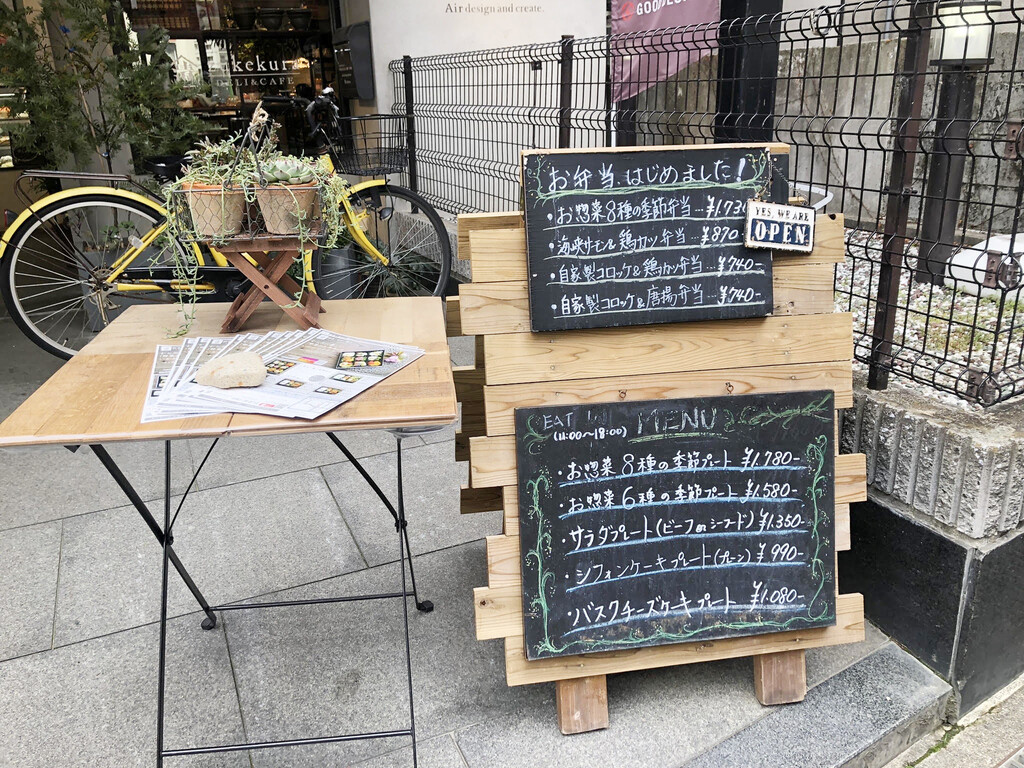 Air design and create.
GOOD
kekura
LI&CAFE
お弁当、はじめました!
・お惣菜8種の季節弁当…¥1,730
・海峡サーモン&鶏カツ弁当…¥870
・自家製コロッケ&鶏カツ弁当…¥740-
・自家製コロッケ&唐揚弁当…¥740-
YES, WE ARE
OPEN
EAT in MENU
(11:00〜18:00)
・お惣菜8種の季節プレート ¥1,780-
・お惣菜6種の季節プレート ¥1,580-
・サラダプレート(ビーフorシーフード)¥1,350-
・シフォンケーキプレート(プレーン)¥990-
・バスクチーズケーキプレート ¥1,080-